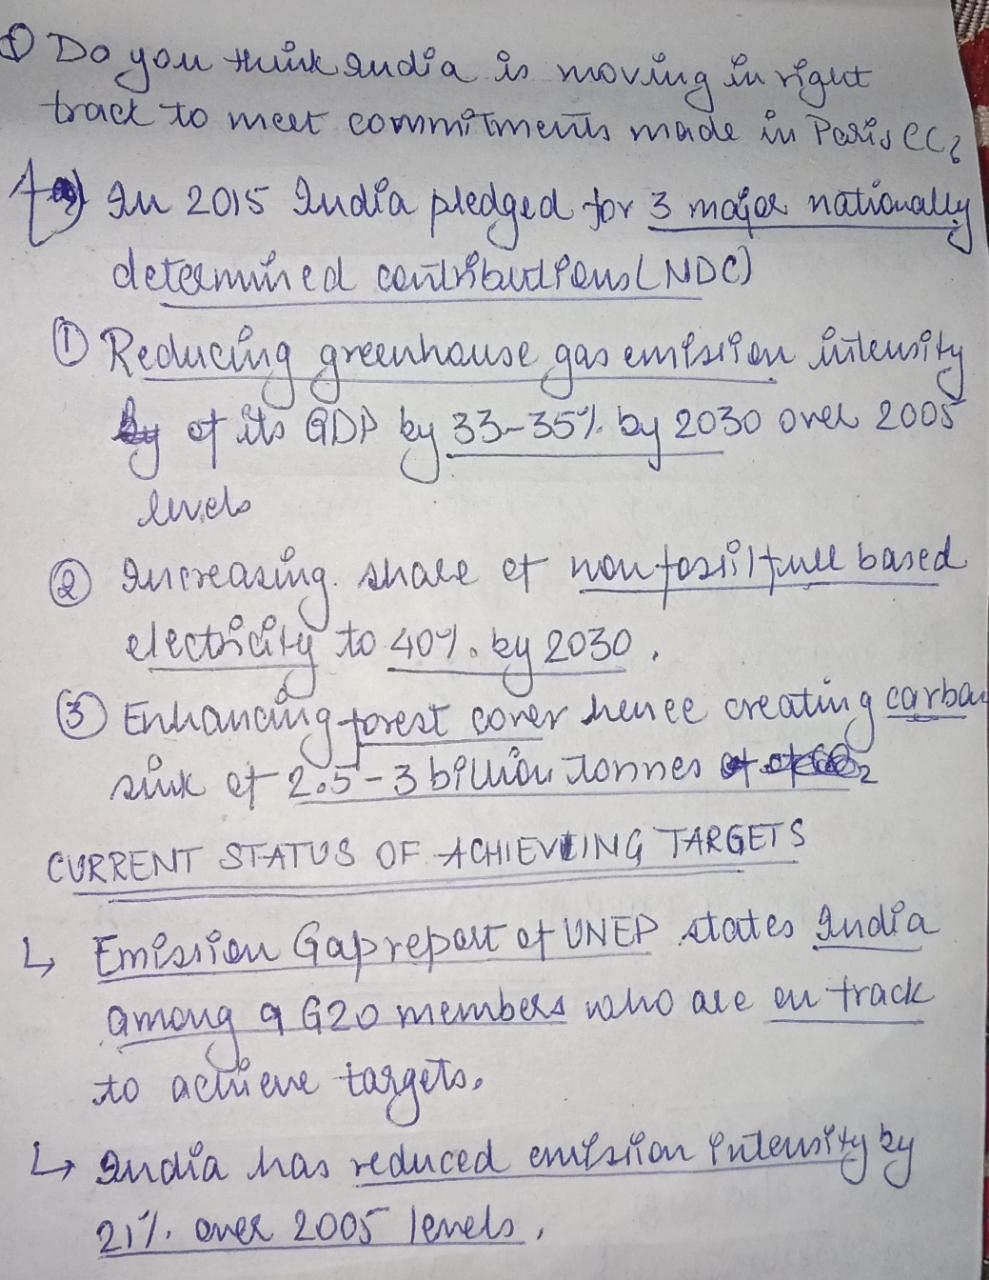 ① Do you think India is moving in right
track to meet commitments made in Paris CC?
A) In 2015 India pledged for 3 major nationally
determined contributions (NDC)
① Reducing greenhouse gas emission intensity
of its GDP by 33-35% by 2030 over 2005
levels
② Increasing share of non fossil fuel based
electricity to 40% by 2030.
③ Enhancing forest cover hence creating carbon
sink of 2.5-3 billion tonnes
CURRENT STATUS OF ACHIEVING TARGETS
↳ Emission Gap report of UNEP states India
among 9 G20 members who are on track
to achieve targets.
↳ India has reduced emission intensity by
21% over 2005 levels.